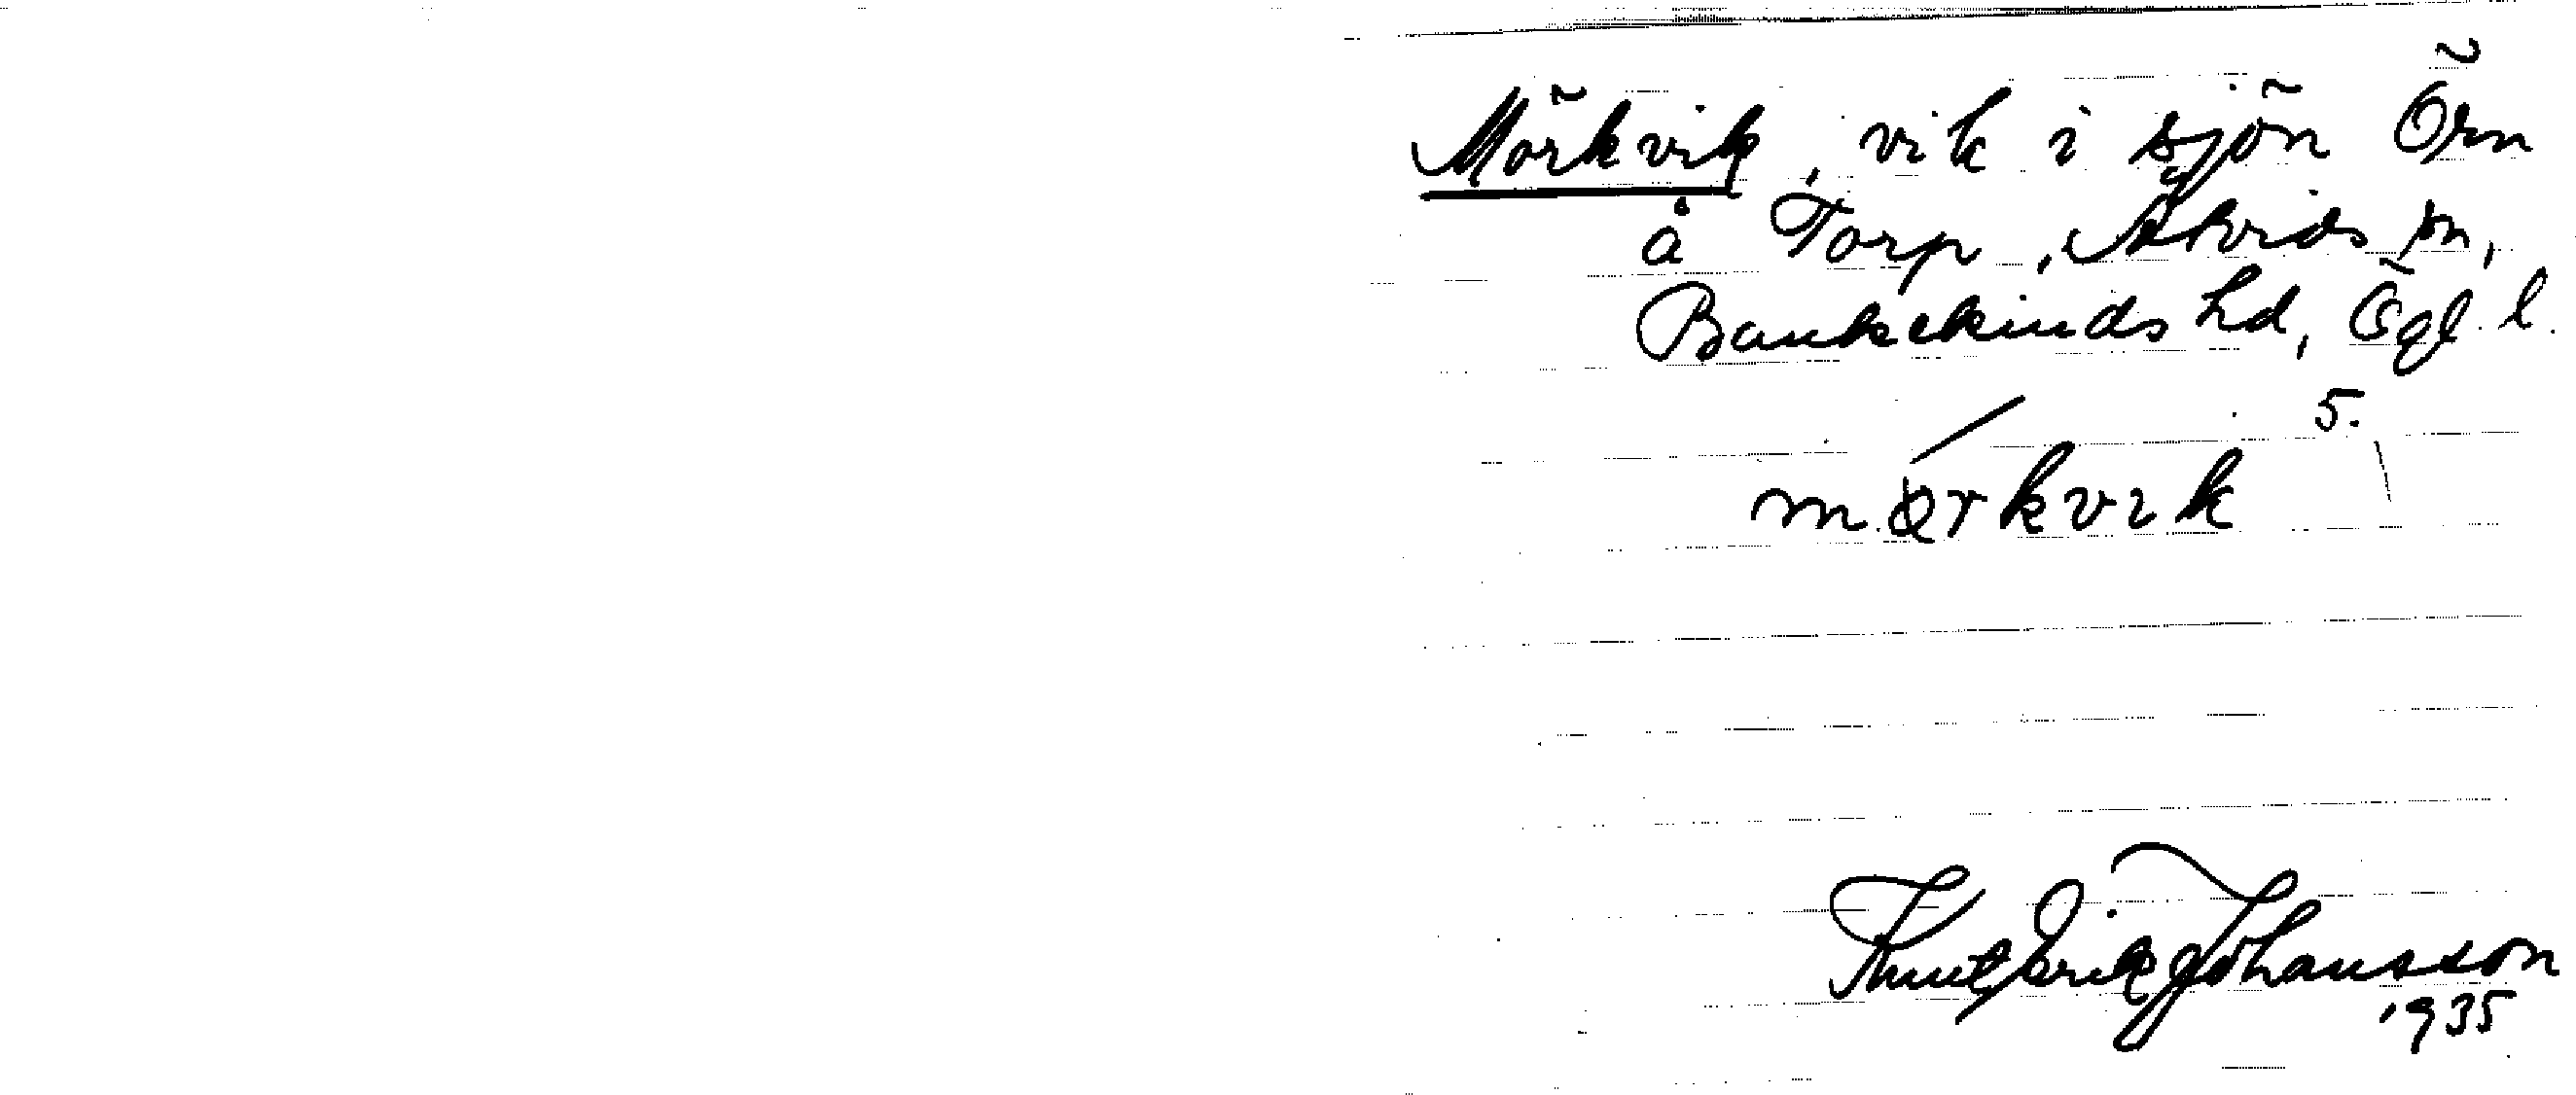 Mörkvik, vik i sjön Örn
å Torp, Åtvids sn,
Bankekinds hd, Ögl. l.
5.
mörkvik
Knut Erik Johansson
1935